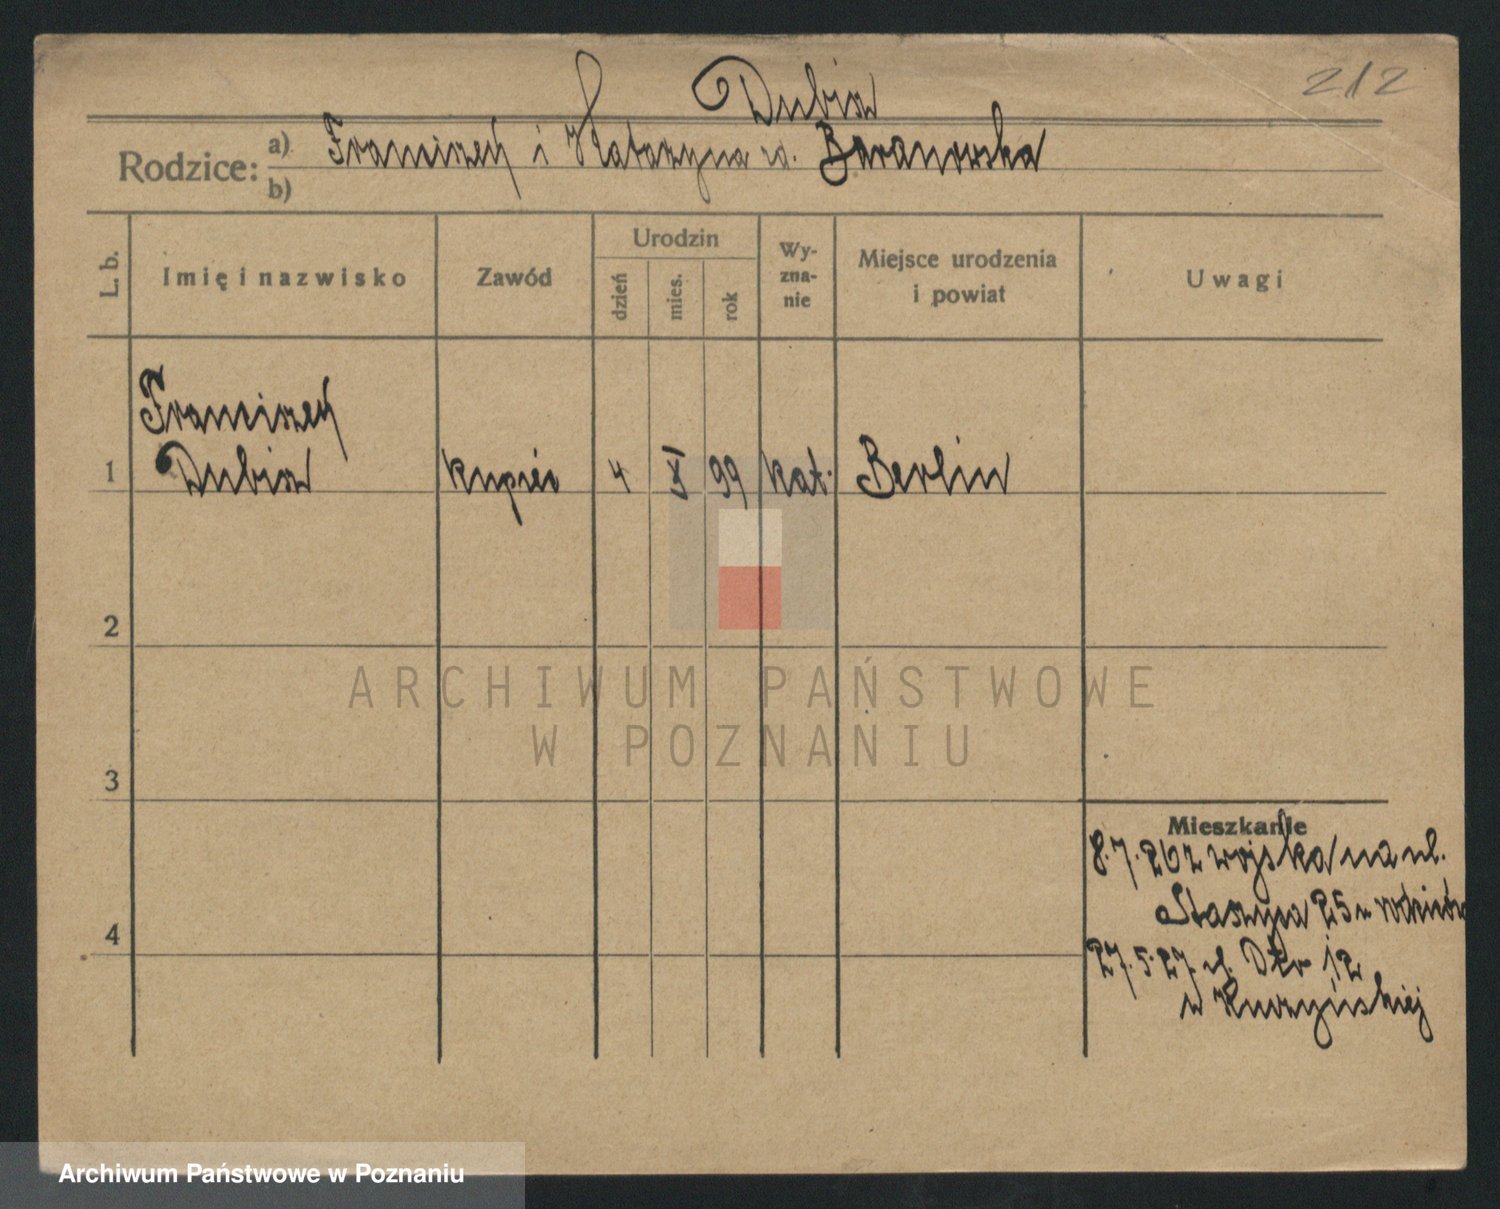 212
Dubisz
Rodzice: a) Franciszek i Katarzyna zd. Baranowska
b)
L. b. Imię i nazwisko Zawód Urodzin dzień mies. rok Wy-zna-nie Miejsce urodzenia i powiat Uwagi
Franciszek
1 Dubisz kupiec 4 X 99 kat. Berlin
2
ARCHIWUM PAŃSTWOWE
W POZNANIU
3
Mieszkanie
8.7.26 z wojska na ul.
Staszyca 25 u rodziców
4
27.5.27 ul. 12
u
Archiwum Państwowe w Poznaniu